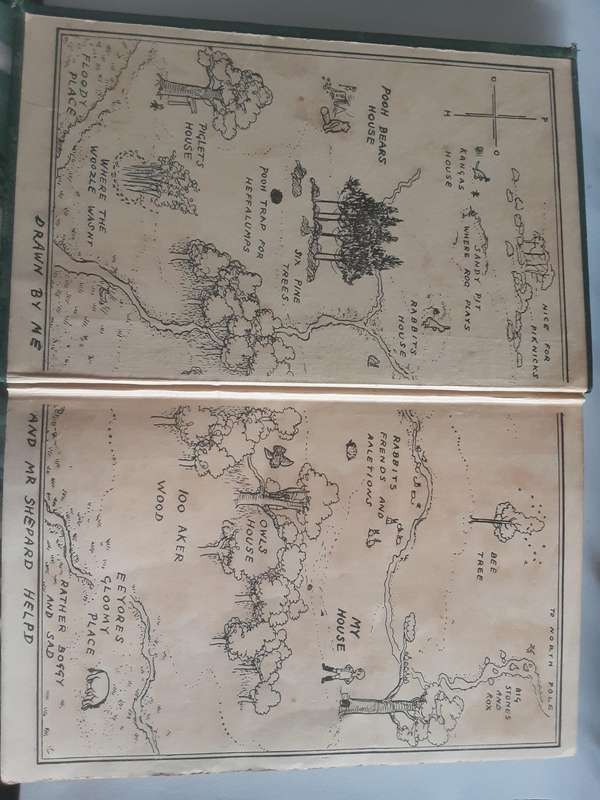 P
O O
H
NICE FOR
PIKNICKS
SANDY PIT
WHERE ROO
PLAYS
KANGAS
HOUSE
RABBITS
HOUSE
POOH BEARS
HOUSE
SIX PINE
TREES
POOH TRAP FOR
HEFFALUMPS
PIGLETS
HOUSE
WHERE THE
WOOZLE WASNT
FLOODY
PLACE
DRAWN BY ME
TO NORTH POLE
BIG
STONES
AND
ROX
BEE
TREE
RABBITS
FRENDS AND
RALETIONS
MY
HOUSE
OWLS
HOUSE
100 AKER
WOOD
EEYORES
GLOOMY
PLACE
RATHER BOGGY
AND SAD
AND MR SHEPARD HELPD